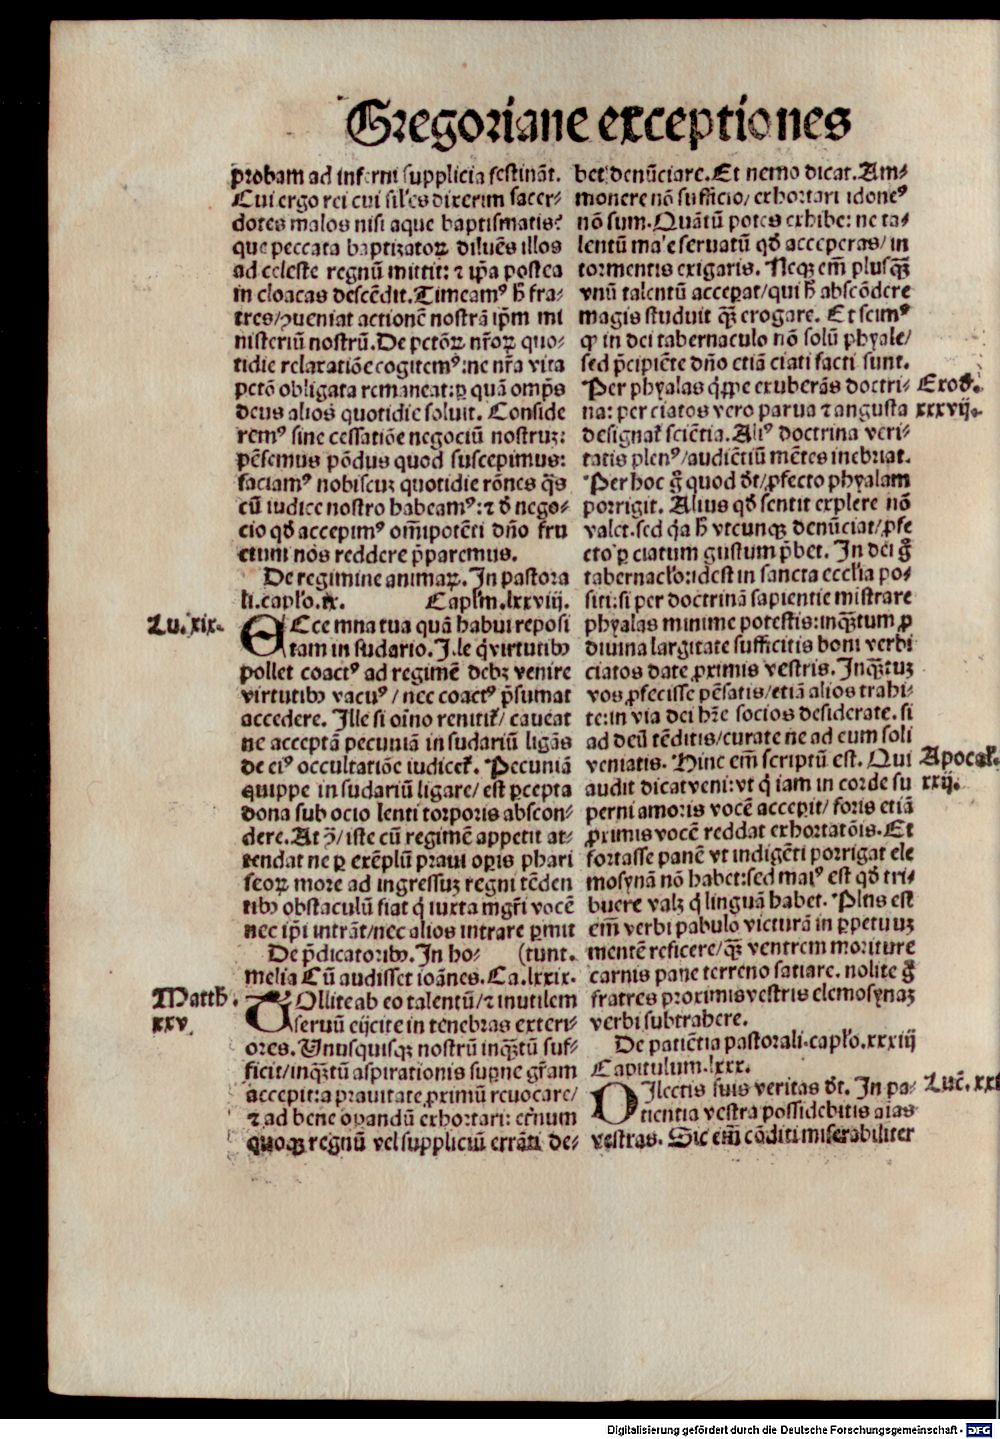 Gregoriane exceptiones
probam ad inferni supplicia festinãt.
Cui ergo rei cui sil'es dixerim sacer-
dotes malos nisi aque baptismatis:
que peccata baptizatoꝝ diluẽs illos
ad celeste regnũ mittit: ⁊ ip̃a postea
in cloacas descẽdit. Timeamꝰ h̃ fra-
tres/ꝯueniat actionẽ nostrã ip̃m mi
nisteriũ nostrũ. De pctõꝝ nr̃oꝝ quo-
tidie relaxatiõe cogitemꝰ: ne nr̃a vita
pctõ obligata remaneat: ꝑ quã omp̃s
deus alios quotidie soluit. Conside
remꝰ sine cessatiõe negociũ nostruꝫ:
pẽsemus põdus quod suscepimus:
faciamꝰ nobiscuꝫ quotidie rõnes q̃s
cũ iudice nostro habeamꝰ: ⁊ d̓ nego-
cio qd̓ accepimꝰ om̃ipotẽti dño fru
ctum nos reddere p̃paremus.
De regimine animaꝝ. In pastora
li. capl̓o. ix. Capl̓m. lxxviij.
Lu. xix.
ECce mna tua quã habui reposi
tam in sudario. I. le q̓ virtutibꝰ
pollet coactꝰ ad regimẽ debꝫ venire
virtutibꝰ vacuꝰ / nec coactꝰ p̃sumat
accedere. Ille si oĩno renitit̃/ caueat
ne acceptã pecuniã in sudariũ ligãs
de eiꝰ occultatiõe iudicet̃. Pecuniã
quippe in sudariũ ligare/ est ꝑcepta
dona sub ocio lenti torporis abscon-
dere. At ꝯ̃/ iste cũ regimẽ appetit at-
tendat ne ꝑ exẽplũ praui oꝑis phari
seoꝝ more ad ingressuꝫ regni tẽden
tibꝰ obstaculũ fiat q̓ iuxta mgr̃i vocẽ
nec ip̃i intrãt/nec alios intrare ꝑmit
De p̃dicatoribꝰ. In ho- (tunt.
melia Cũ audisset ioãnes. Ca. lxxix.
Matth.
xxv.
TOllite ab eo talentũ/⁊ inutilem
seruũ eijcite in tenebras exteri-
ores. Unusquisqꝫ nostrũ inq̃ꝫtũ suf-
ficit/inq̃ꝫtũ aspirationis suꝑne gr̃am
accepit: a prauitate ꝓximũ reuocare/
⁊ ad bene oꝑandũ exhortari: et̃num
quoqꝫ regnũ vel suppliciũ errãti de-
bet denũciare. Et nemo dicat. Am-
monere nõ sufficio/ exhortari idoneꝰ
nõ sum. Quãtũ potes exhibe: ne ta-
lentũ male seruatũ qd̓ acceperas/ in
tormentis exigaris. Neqꝫ em̃ plusq̃ꝫ
vnũ talentũ acceꝑat/qui h̃ abscõdere
magis studuit q̃ꝫ erogare. Et scimꝰ
ꝙ in dei tabernaculo nõ solũ phyale/
sed p̃cipiẽte dño etiã ciati facti sunt.
Per phyalas q̓ꝓpe exuberãs doctri-
na: per ciatos vero parua ⁊ angusta
Exod̓.
xxxvij.
designat̃ sciẽtia. Aliꝰ doctrina veri-
tatis plenꝰ/audiẽtiũ mẽtes inebriat.
Per hoc g̃ quod d̓t/ꝓfecto phyalam
porrigit. Alius qd̓ sentit explere nõ
valet. sed q̓a h̃ vtcunqꝫ denũciat/ꝓfe
cto ꝑ ciatum gustum p̃bet. In dei g̃
tabernacl̓o: idest in sancta eccl̓ia po-
siti: si per doctrinã sapientie mistrare
phyalas minime potestis: inq̃ꝫtum ꝓ
diuina largitate sufficitis boni verbi
ciatos date ꝓximis vestris. Inq̃ꝫtuꝫ
vos ꝓfecisse pẽsatis/etiã alios trahi-
te: in via dei hr̃e socios desiderate. si
ad deũ tẽditis/curate ne ad eum soli
veniatis. Hinc em̃ scriptũ est. Qui
Apocal̓.
xxij.
audit dicat veni: vt q̓ iam in corde su
perni amoris vocẽ acceꝑit/ foris etiã
ꝓximis vocẽ reddat exhortatõis. Et
fortasse panẽ vt indigẽti porrigat ele
mosynã nõ habet: sed maiꝰ est qd̓ tri-
buere valꝫ q̓ linguã habet. Plus est
em̃ verbi pabulo victurã in ꝑpetuuꝫ
mentẽ reficere/q̃ꝫ ventrem moriture
carnis pane terreno satiare. nolite g̃
fratres proximis vestris elemosynaꝫ
verbi subtrahere.
De patiẽtia pastorali. capl̓o. xxxiij
Capitulum. lxxx.
Luč. xxi
DIlectis suis veritas d̓t. In pa-
tientia vestra possidebitis aĩas
vestras. Sic em̃ cõditi miserabiliter
Digitalisierung gefördert durch die Deutsche Forschungsgemeinschaft - DFG